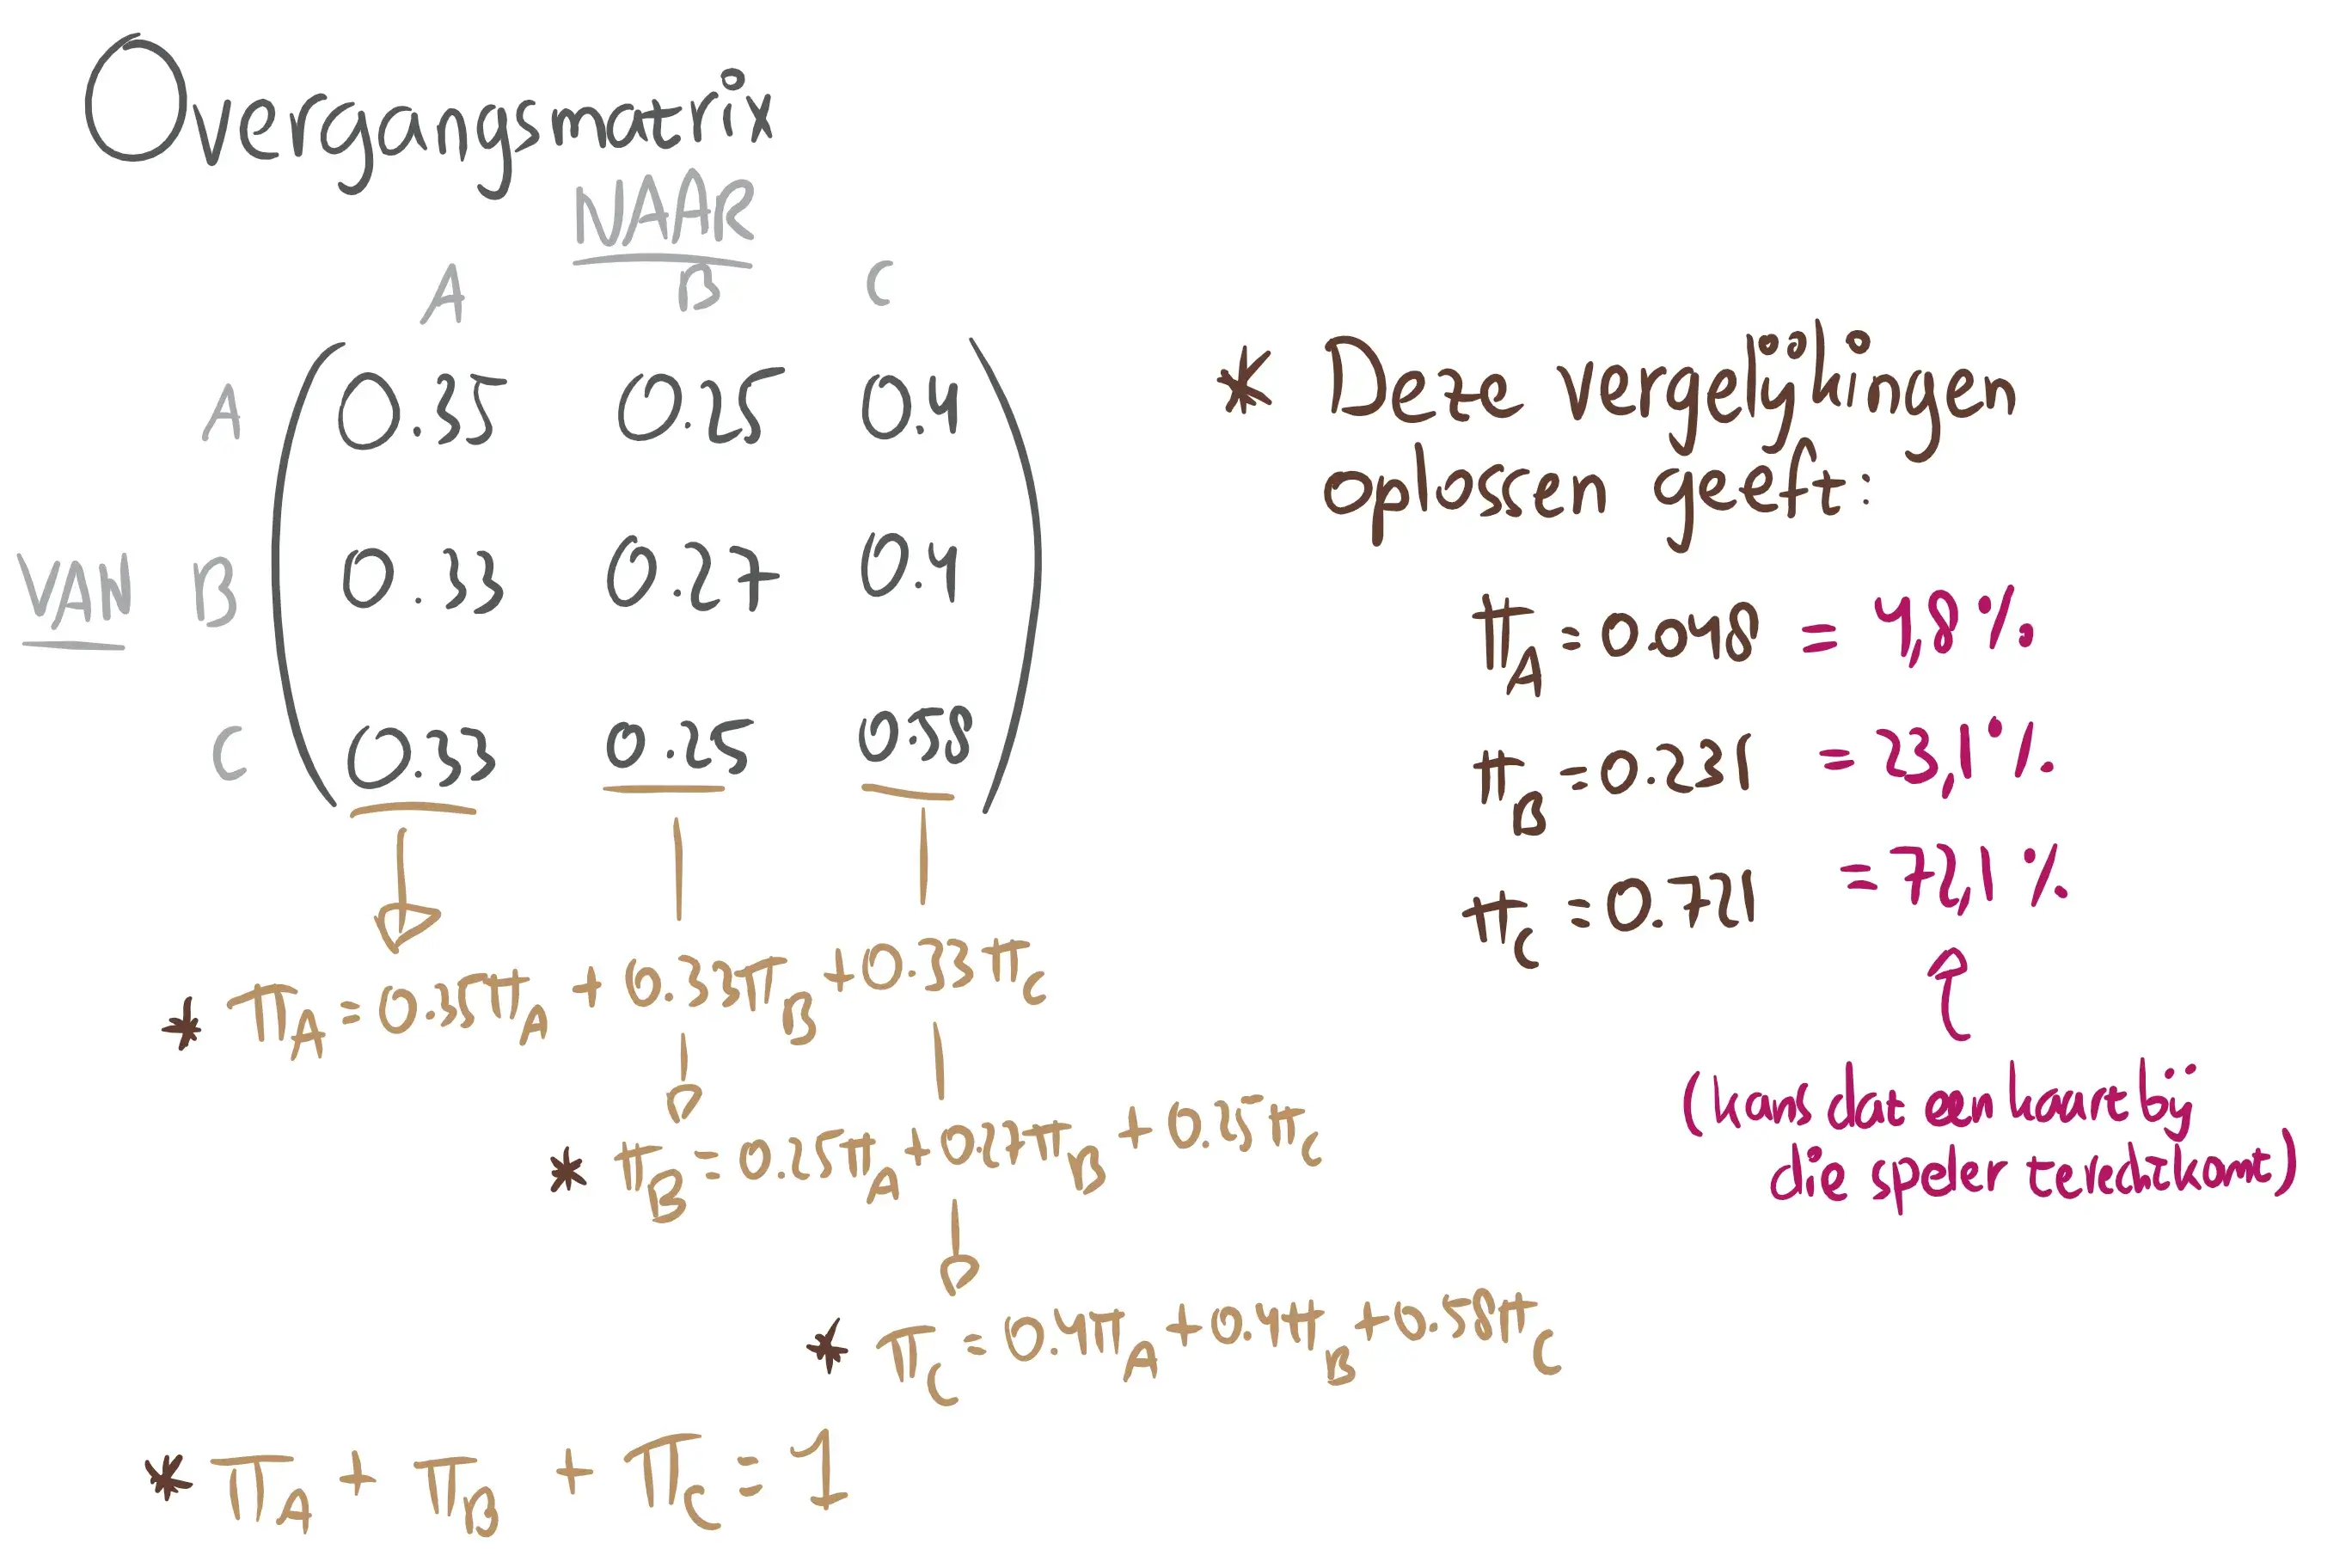 Overgangsmatrix
NAAR
A B C
A 0.35 0.25 0.4
VAN B 0.33 0.27 0.4
C 0.33 0.25 0.58
* πA = 0.35πA + 0.33πB + 0.33πC
* πB = 0.25πA + 0.27πB + 0.25πC
* πC = 0.4πA + 0.4πB + 0.58πC
* πA + πB + πC = 1
* Deze vergelijkingen
oplossen geeft:
πA = 0.048 = 4,8%
πB = 0.231 = 23,1%
πC = 0.721 = 72,1%
(kans dat een kaart bij
die speler terechtkomt)